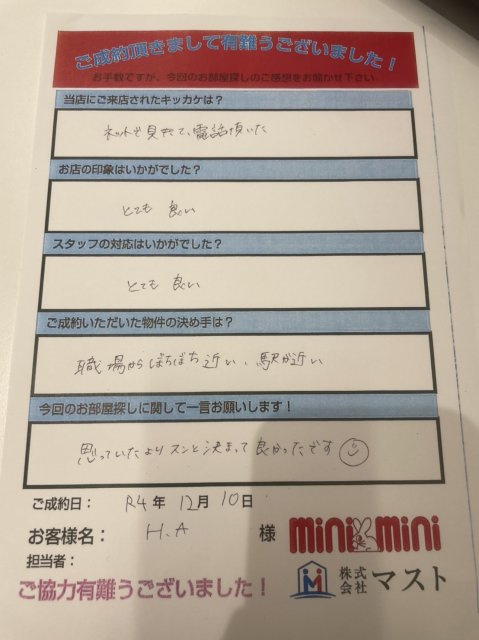 ご成約頂きまして有難うございました!
お手数ですが、今回のお部屋探しのご感想をお聞かせ下さい
当店にご来店されたキッカケは?
ネットで見れて、電話頂いた
お店の印象はいかがでした?
とても 良い
スタッフの対応はいかがでした?
とても 良い
ご成約いただいた物件の決め手は?
職場からぼちぼち近い、駅が近い
今回のお部屋探しに関して一言お願いします!
思っていたよりスンと決まって良かったです
ご成約日: R4年 12月 10日
お客様名: H.A 様
担当者:
ご協力有難うございました!
mini mini
株式会社 マスト